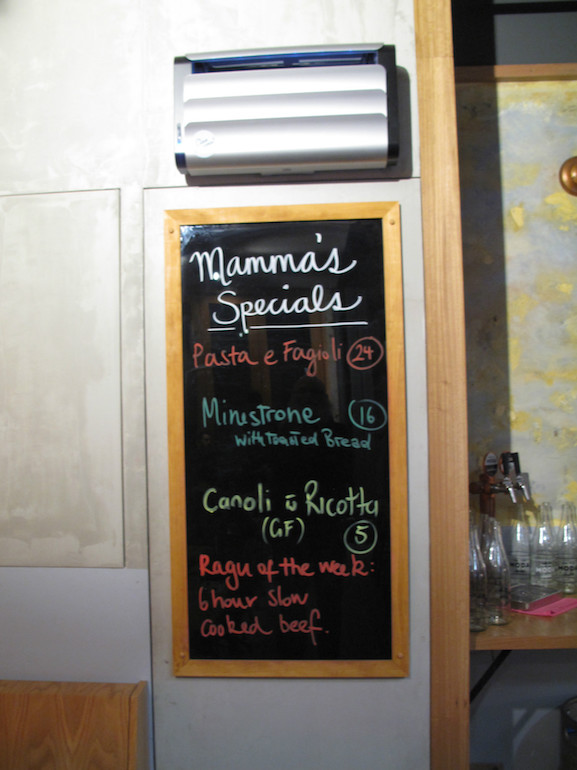 Mamma's
Specials
Pasta e Fagioli 24
Minestrone 16
with toasted Bread
Canoli c̄ Ricotta
(GF) 5
Ragu of the week:
6 hour slow
cooked beef.